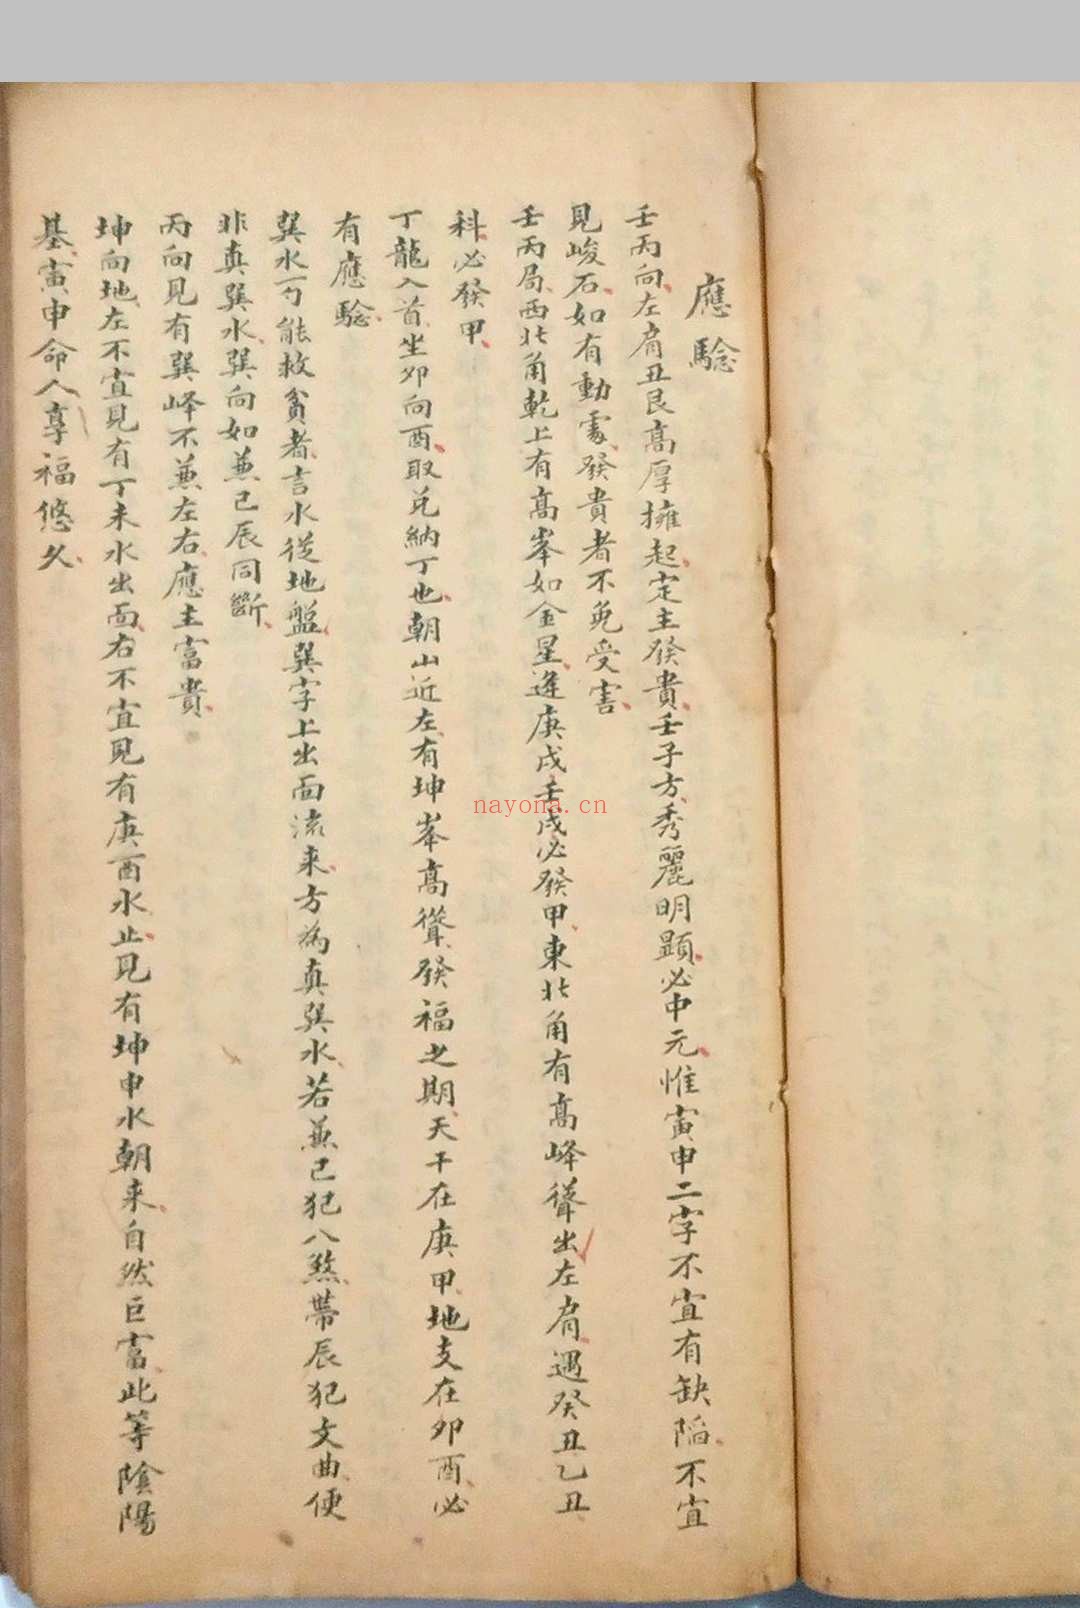 應驗
壬丙向左肩丑艮高厚擁起定主發貴壬子方秀麗明顕必中元惟寅申二字不宜有缺陷不宜
見峻石如有動處發貴者不免受害
壬丙局西北角乾上有高峯如金星逢庚戌壬戌必發甲東北角有高峰聳出左肩遇癸丑乙丑
科必發甲
丁龍入首坐卯向酉取兌納丁也朝山近左有坤峯高聳發福之期天干在庚甲地支在卯酉必
有應驗
巽水一勺能救貧者言水從地盤巽字上出面流来方為真巽水若兼巳犯八煞帶辰犯文曲便
非真巽水巽向如兼巳辰同斷
丙向見有巽峰不兼左右應主富貴
坤向地左不宜見有丁未水出面右不宜見有庚酉水止見有坤申水朝来自然巨富此等陰陽
基寅申命人享福悠久
nayona.cn